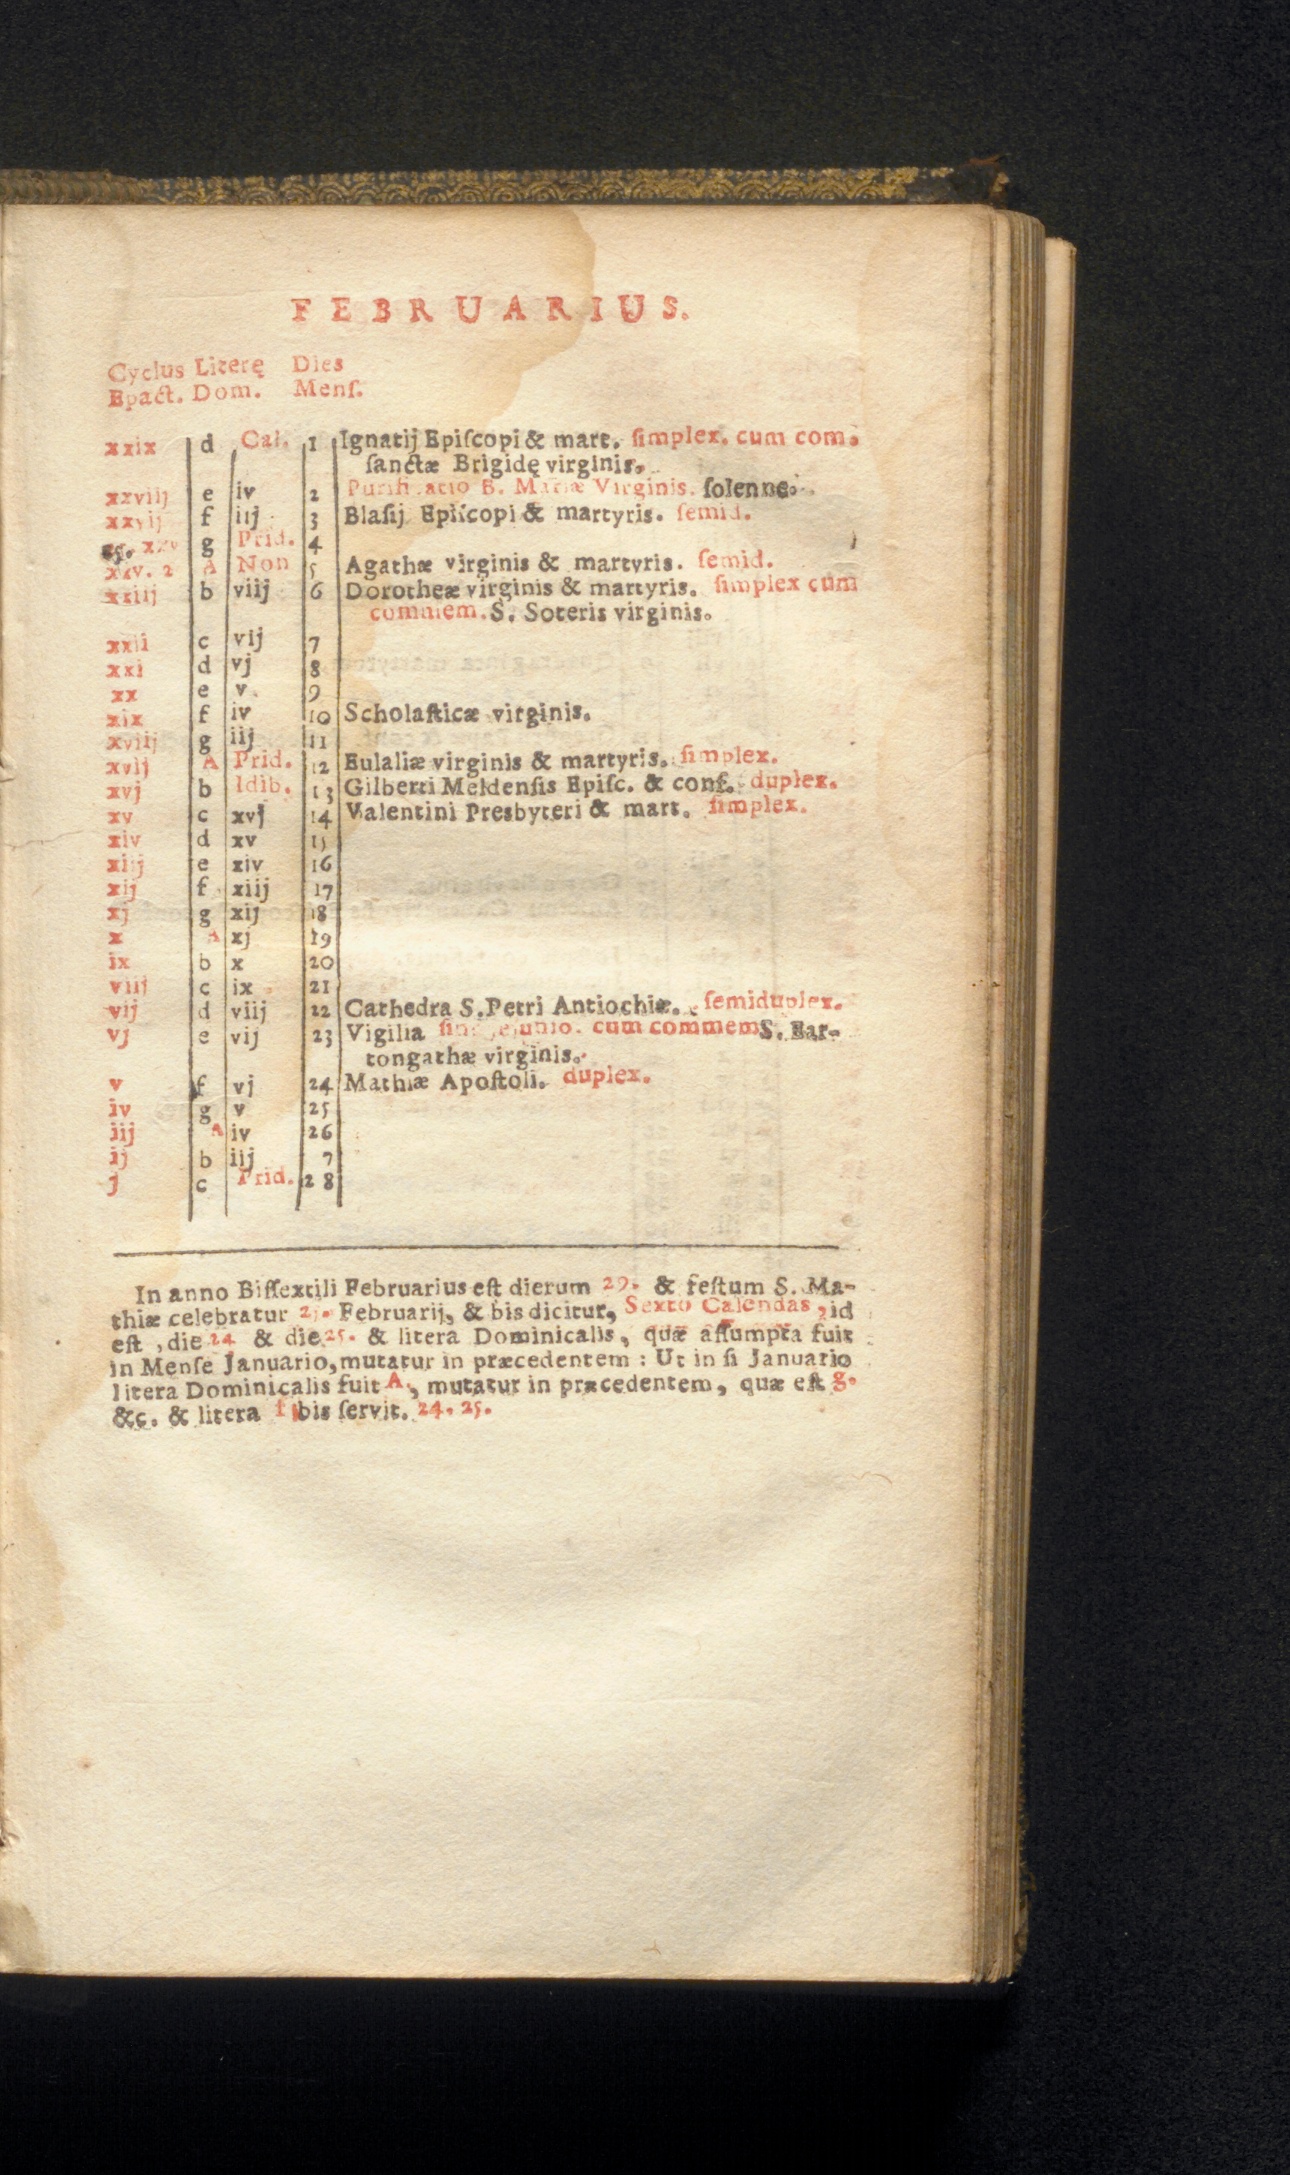 FEBRUARIUS.
Cyclus Literę Dies
Epact. Dom. Menſ.
xxix d Cal. 1 Ignatij Epiſcopi & mart. ſimplex. cum com.
ſanctæ Brigidę virginis.
xxviij e iv 2 Purificatio B. Mariæ Virginis. ſolenne.
xxvij f iij 3 Blaſij Epiſcopi & martyris. ſemid.
25. xxv g Prid. 4
xxv. 2 A Non 5 Agathæ virginis & martyris. ſemid.
xxiij b viij 6 Dorotheæ virginis & martyris. ſimplex cum
commem. S. Soteris virginis.
xxii c vij 7
xxi d vj 8
xx e v. 9
xix f iv 10 Scholaſticæ virginis.
xviij g iij 11
xvij A Prid. 12 Eulaliæ virginis & martyris. ſimplex.
xvj b Idib. 13 Gilberti Meldenſis Epiſc. & conf. duplex.
xv c xvj 14 Valentini Presbyteri & mart. ſimplex.
xiv d xv 15
xiij e xiv 16
xij f xiij 17
xj g xij 18
x A xj 19
ix b x 20
viij c ix 21
vij d viij 22 Cathedra S. Petri Antiochiæ. ſemiduplex.
vj e vij 23 Vigilia cum commem S. Ear-
tongathæ virginis.
v f vj 24 Mathiæ Apoſtoli. duplex.
iv g v 25
iij A iv 26
ij b iij 7
j c Prid. 28
In anno Biſſextili Februarius eſt dierum 29. & feſtum S. Ma-
thiæ celebratur 25. Februarij, & bis dicitur, Sexto Calendas, id
eſt, die 24 & die 25. & litera Dominicalis, quæ aſſumpta fuit
in Menſe Januario, mutatur in præcedentem : Ut in ſi Januario
litera Dominicalis fuit A, mutatur in præcedentem, quæ eſt g.
&c. & litera f bis ſervit. 24. 25.